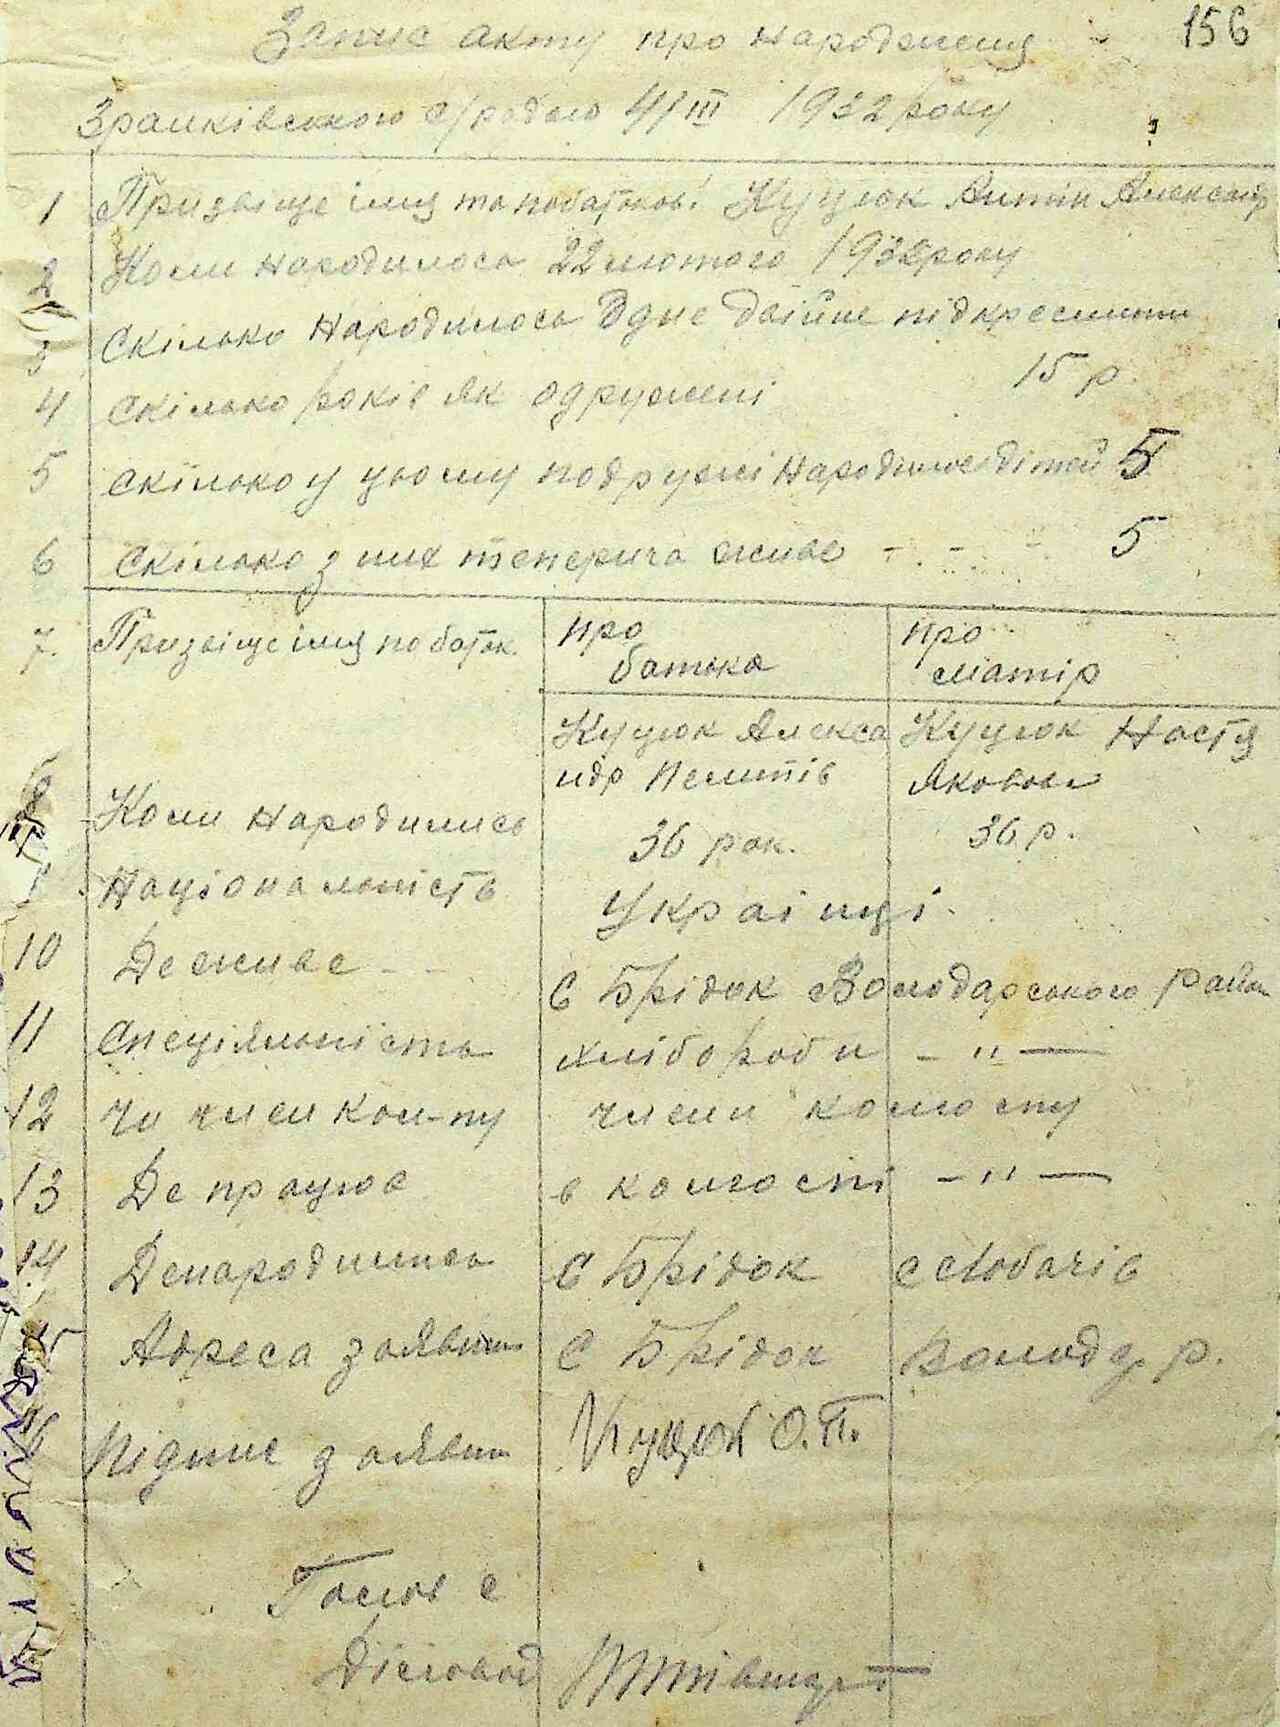 156
Запис акту про народження
Зрайківською с/радою 4/III 1932 року
1 Призвіще імя та побатькові Куцюк Антін Александр
2 Коли народилося 22 лютого 1932 року
3 Скілько народилось одне двійне підкреслити
4 Скілько років як одружені 15 р.
5 Скілько у цьому подружі народилос дітей 5
6 Скілько з них теперича живе - - - 5
7. Призвіще імя по баток. про батька про матір
Куцюк Алекса Куцюк Настя
ндр Пелипів Яковов
8 Коли народились 36 рок. 36 р.
Національність Українці.
10 Де живе с Брідок Володарського район
11 Спеціяльність хлібороби - " -
12 Чи член кол-пу члени колгоспу
13 Де працює в колгоспі - " -
14 Де народились с Брідок с Лобачів
15 Адреса заявит с Брідок Володар р.
16 Підпис заявит Куцюк О.П.
Голов с
Діловод